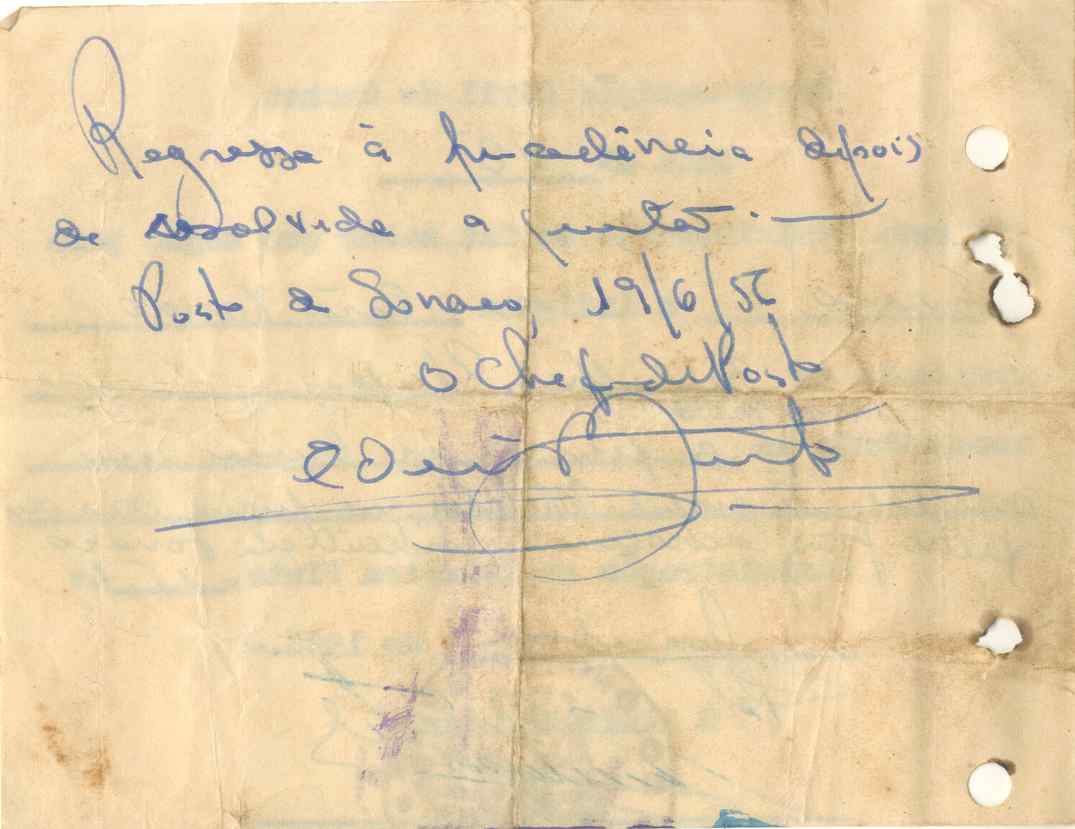 Regressa à procedência depois
de resolvida a questão.
Posto de Sonaco, 19/6/56
O Chefe de Posto